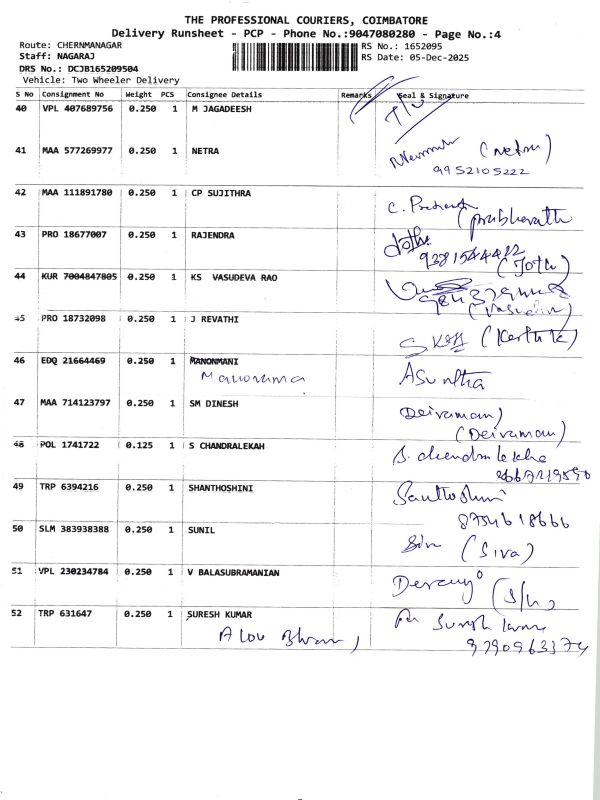 THE PROFESSIONAL COURIERS, COIMBATORE
Delivery Runsheet - PCP - Phone No.:9047080280 - Page No.:4
Route: CHERNMANAGAR RS No.: 1652095
Staff: NAGARAJ RS Date: 05-Dec-2025
DRS No.: DCJB165209504
Vehicle: Two Wheeler Delivery
S No Consignment No Weight PCS Consignee Details Remarks Seal & Signature
40 VPL 407689756 0.250 1 M JAGADEESH
41 MAA 577269977 0.250 1 NETRA (Netra)
9952105222
42 MAA 111891780 0.250 1 CP SUJITHRA
(prabharath
43 PRO 18677007 0.250 1 RAJENDRA
9381544412
(Joth)
44 KUR 7004847805 0.250 1 KS VASUDEVA RAO
45 PRO 18732098 0.250 1 J REVATHI (Karthik)
46 EDQ 21664469 0.250 1 MANONMANI
Manorama Asuntha
47 MAA 714123797 0.250 1 SM DINESH Deivamani
(Deivamani)
48 POL 1741722 0.125 1 S CHANDRALEKAH S. chandralekha
49 TRP 6394216 0.250 1 SHANTHOSHINI Santhoshini
8754618666
50 SLM 383938388 0.250 1 SUNIL (Siva)
51 VPL 230234784 0.250 1 V BALASUBRAMANIAN
52 TRP 631647 0.250 1 SURESH KUMAR
9790963374